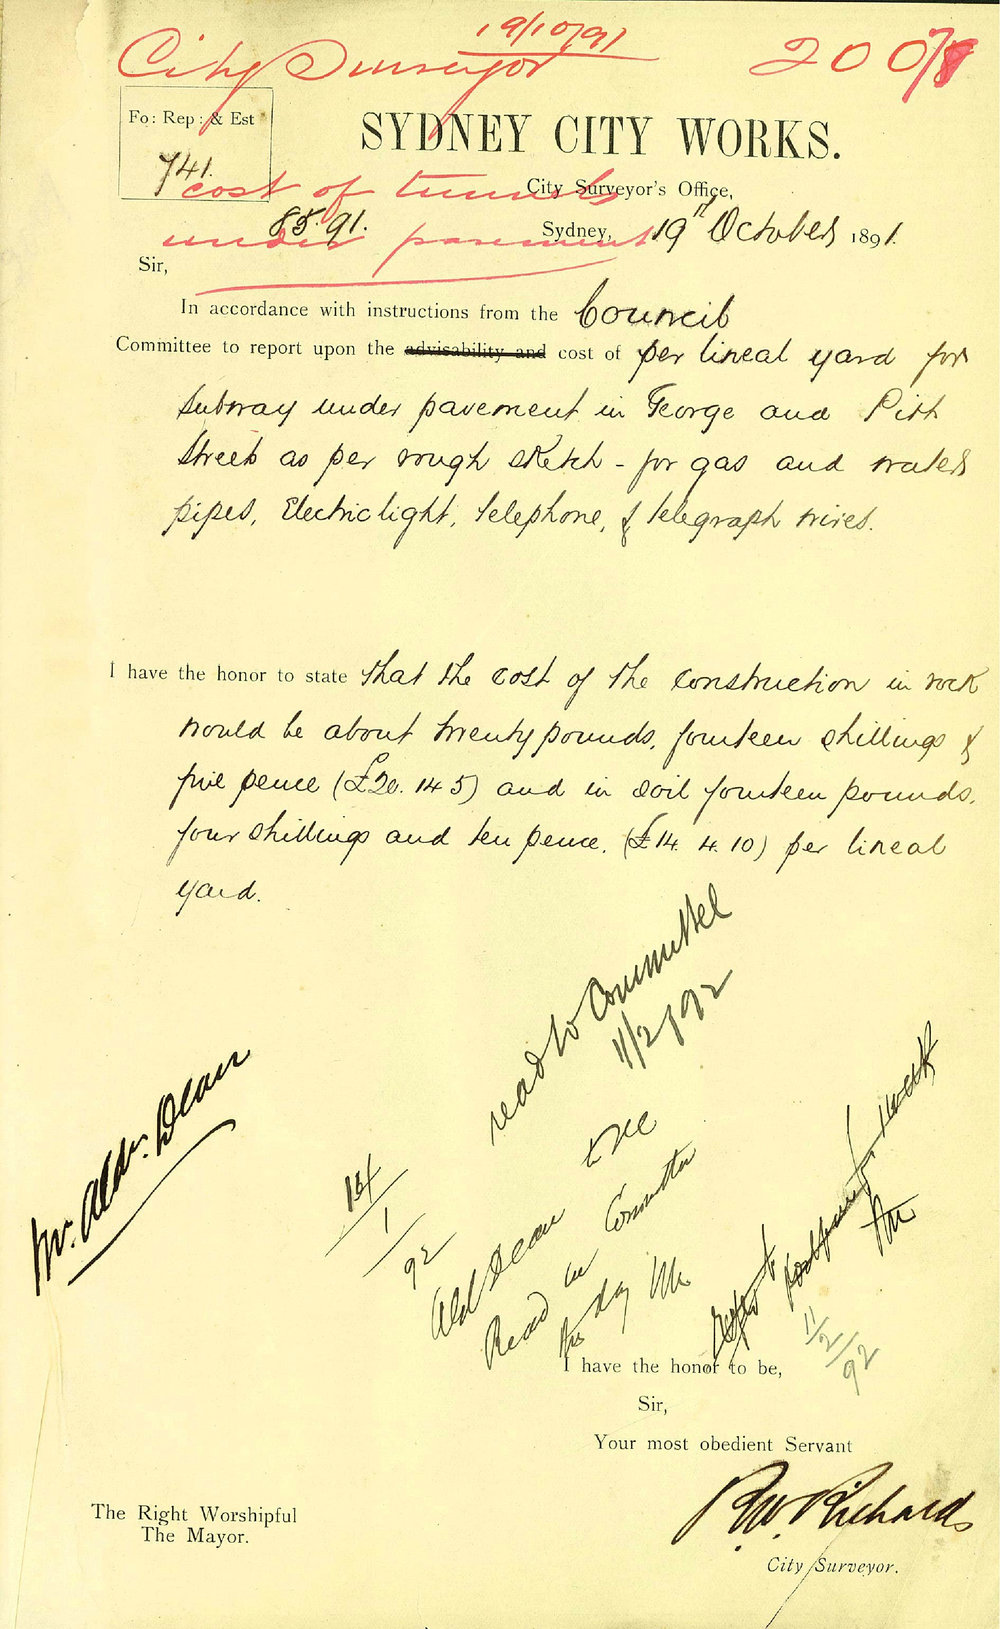 19/10/91
City Surveyor
2007
Fo: Rep: & Est
741.
85.91.
SYDNEY CITY WORKS.
cost of tunnels
under pavement
City Surveyor's Office,
Sydney, 19th October 1891.
Sir,
In accordance with instructions from the Council
Committee to report upon the advisability and cost of per lineal yard for
subway under pavement in George and Pitt
Streets as per rough sketch - for gas and water
pipes, Electric light, telephone, & telegraph wires.
I have the honor to state that the cost of the construction in rock
would be about twenty pounds, fourteen shillings &
five pence (£20. 14 5) and in soil fourteen pounds,
four shillings and ten pence. (£14. 4. 10) per lineal
yard.
read to Committee
11/2/92
Mr. Aldn. Dean
14/1/92
Ald Dean
Read in Committee
this day
postponed for 1 week
11/2/92
I have the honor to be,
Sir,
Your most obedient Servant
R.W. Richards
City Surveyor.
The Right Worshipful
The Mayor.